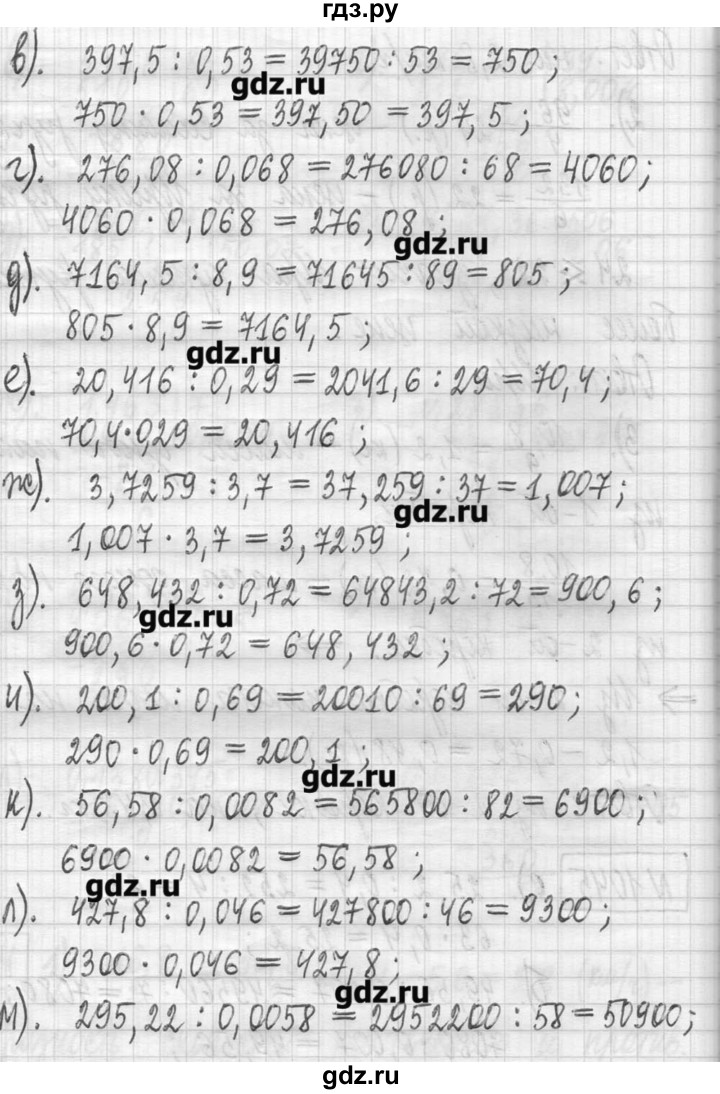 гдз.ру
в). 397,5 : 0,53 = 39750 : 53 = 750 ;
gdz.ru
750 · 0,53 = 397,50 = 397,5 ;
г). 276,08 : 0,068 = 276080 : 68 = 4060;
4060 · 0,068 = 276,08 ;
gdz.ru
д). 7164,5 : 8,9 = 71645 : 89 = 805 ;
805 · 8,9 = 7164,5 ;
gdz.ru
е). 20,416 : 0,29 = 2041,6 : 29 = 70,4 ;
70,4·0,29 = 20,416 ;
ж). 3,7259 : 3,7 = 37,259 : 37 = 1,007 ;
gdz.ru
1,007 · 3,7 = 3,7259 ;
з). 648,432 : 0,72 = 64843,2 : 72 = 900,6 ;
gdz.ru
900,6 · 0,72 = 648,432 ;
и). 200,1 : 0,69 = 20010 : 69 = 290;
290 · 0,69 = 200,1 ;
gdz.ru
к). 56,58 : 0,0082 = 565800 : 82 = 6900 ;
6900 · 0,0082 = 56,58 ;
gdz.ru
л). 427,8 : 0,046 = 427800 : 46 = 9300 ;
9300 · 0,046 = 427,8 ;
gdz.ru
м). 295,22 : 0,0058 = 2952200 : 58 = 50900;
gdz.ru